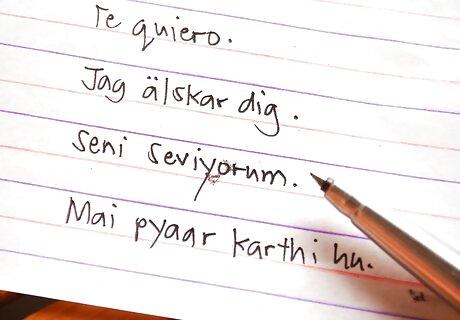 Te quiero.
Jag älskar dig.
Seni seviyorum.
Mai pyaar karthi hu.